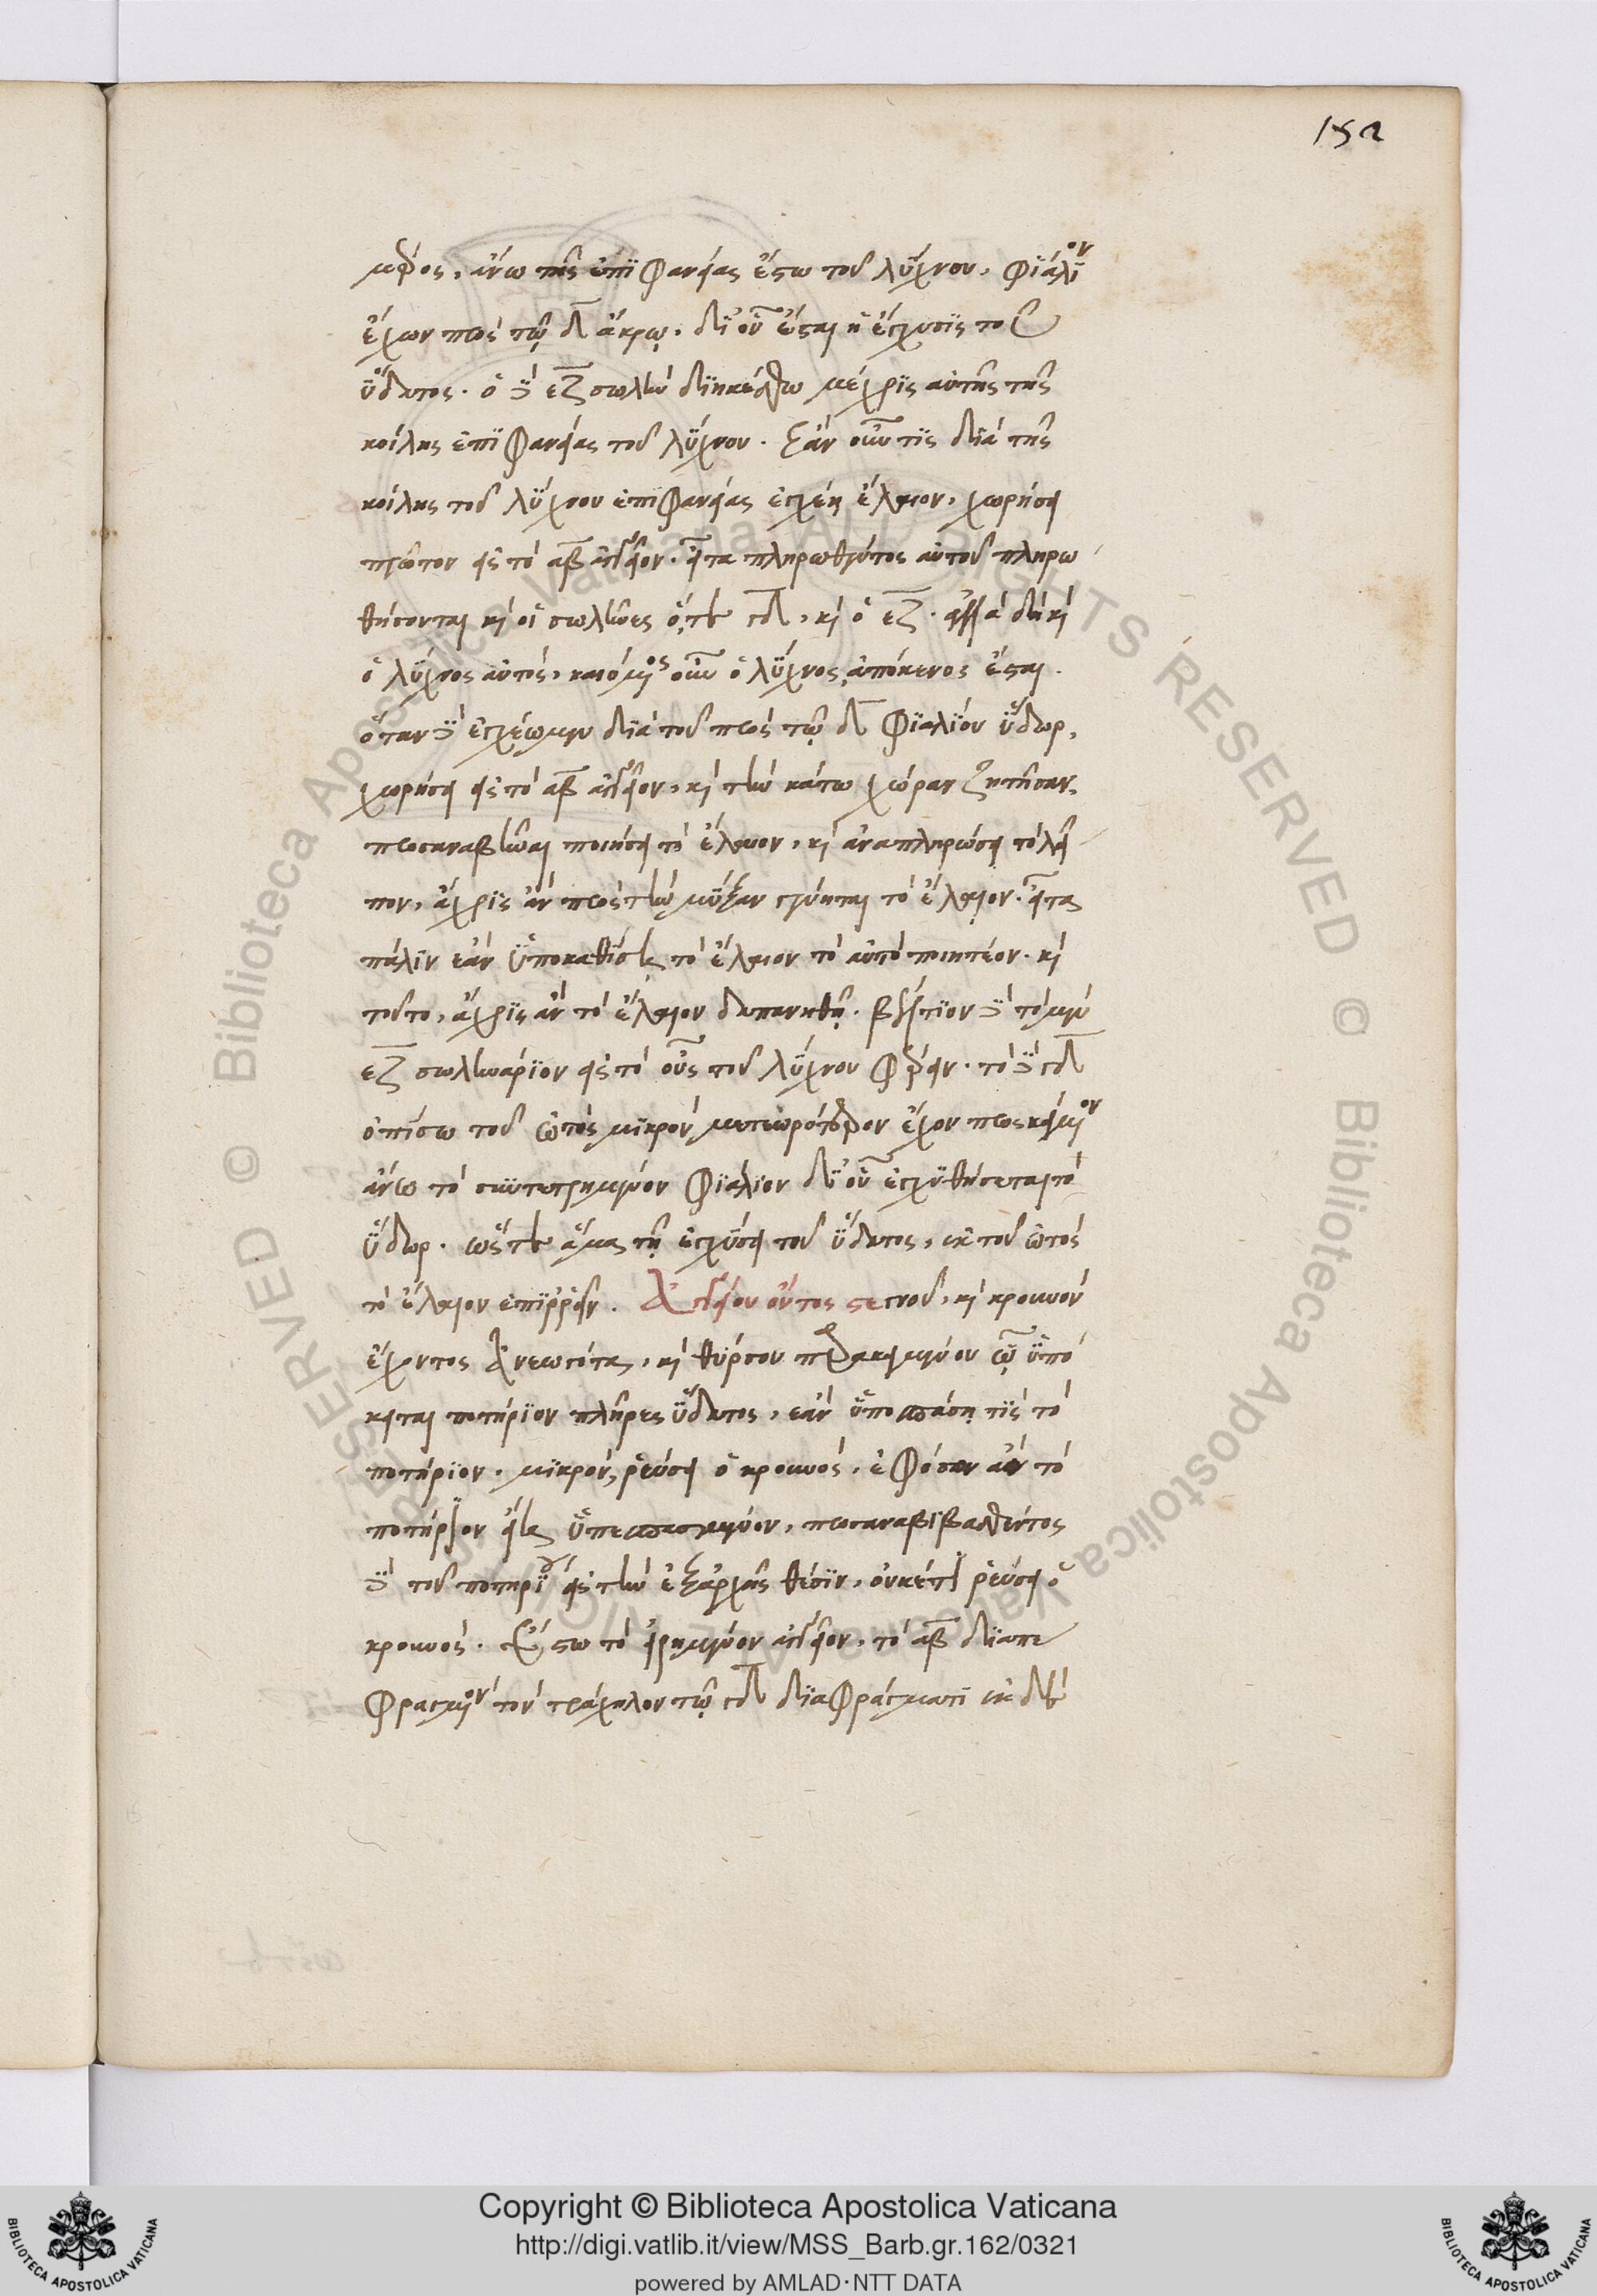 152
μέρος, ἄνω τῆς ἐπιφανείας ἔστω τοῦ λύχνου, φιάλιον
ἔχων πρὸς τῷ δ ἄκρῳ, δι' οὗ ἔσται ἡ ἔγχυσις τοῦ
ὕδατος. ὁ δὲ εζ σωλὴν διηκέσθω μέχρις αὐτῆς τῆς
κοίλης ἐπιφανείας τοῦ λύχνου. ἐὰν οὖν τις διὰ τῆς
κοίλης τοῦ λύχνου ἐπιφανείας ἐγχέῃ ἔλαιον, χωρήσει
πρῶτον εἰς τὸ αβ ἀγγεῖον. εἶτα πληρωθέντος αὐτοῦ πληρω
θήσονται καὶ οἱ σωλῆνες ὅ,τε γδ, καὶ ὁ εζ. ἀλλὰ δὴ καὶ
ὁ λύχνος αὐτός, καιόμενος οὖν ὁ λύχνος, ἀπόκενος ἔσται.
ὅταν δὲ ἐγχέωμεν διὰ τοῦ πρὸς τῷ δ φιαλίου ὕδωρ,
χωρήσει εἰς τὸ αβ ἀγγεῖον, καὶ τὴν κάτω χώραν ζητῆσαν,
προσαναβῆναι ποιήσει τὸ ἔλαιον, καὶ ἀναπληρώσει τὸ λεῖ
πον, ἄχρις ἂν πρὸς τὴν μύξαν γένηται τὸ ἔλαιον. εἶτα
πάλιν ἐὰν ὑποκαθίσῃ τὸ ἔλαιον τὸ αὐτὸ ποιητέον. καὶ
τοῦτο, ἄχρις ἂν τὸ ἔλαιον δαπανηθῇ. βέλτιον δὲ τὸ μὲν
εζ σωληνάριον εἰς τὸ οὖς τοῦ λύχνου φέρειν. τὸ δὲ γδ
ὀπίσω τοῦ ὠτὸς μικρὸν μετεωρότερον ἔχον προσκείμενον
ἄνω τὸ συντετρημένον φιάλιον δι' οὗ ἐγχυθήσεται τὸ
ὕδωρ. ὥστε ἅμα τῇ ἐγχύσει τοῦ ὕδατος, ἐκ τοῦ ὠτὸς
τὸ ἔλαιον ἐπιρρεῖν. Ἀγγείου ὄντος στεγνοῦ, καὶ κρουνὸν
ἔχοντος ἀνεωγότα, καὶ θύρσου παρακειμένου ᾧ ὑπό
κειται ποτήριον πλῆρες ὕδατος, ἐὰν ὑποσπάσῃ τις τὸ
ποτήριον, μικρὸν, ῥεύσει ὁ κρουνός, ἐφ' ὅσον ἂν τὸ
ποτήριον εἴη ὑπεσπασμένον, προσαναβιβασθέντος
δὲ τοῦ ποτηρίου εἰς τὴν ἐξαρχῆς θέσιν, οὐκέτι ῥεύσει ὁ
κρουνός. Ἔστω τὸ εἰρημένον ἀγγεῖον, τὸ αβ διαπε
φραγμένον τὸν τράχηλον τῷ γδ διαφράγματι ἐκ δὲ
Copyright © Biblioteca Apostolica Vaticana
http://digi.vatlib.it/view/MSS_Barb.gr.162/0321
powered by AMLAD·NTT DATA